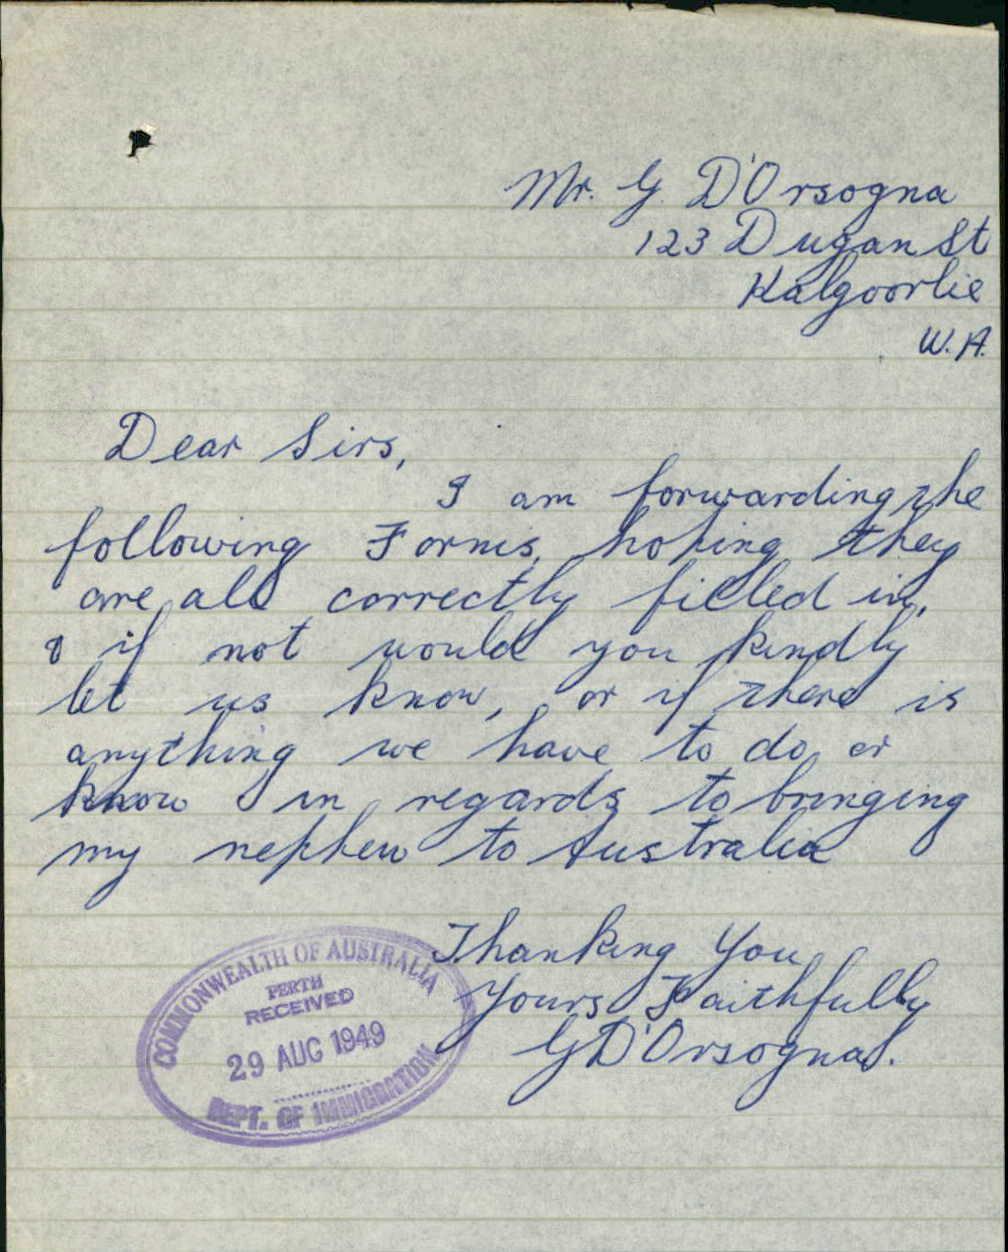 Mr. G. D'Orsogna
123 Dugan St
Kalgoorlie
W.A.
Dear Sirs,
I am forwarding the
following Forms, hoping they
are all correctly filled in,
& if not would you kindly
let us know, or if there is
anything we have to do, or
know in regards to bringing
my nephew to Australia
Thanking You
Yours Faithfully
G D'Orsogna.
COMMONWEALTH OF AUSTRALIA
PERTH
RECEIVED
29 AUG 1949
DEPT. OF IMMIGRATION